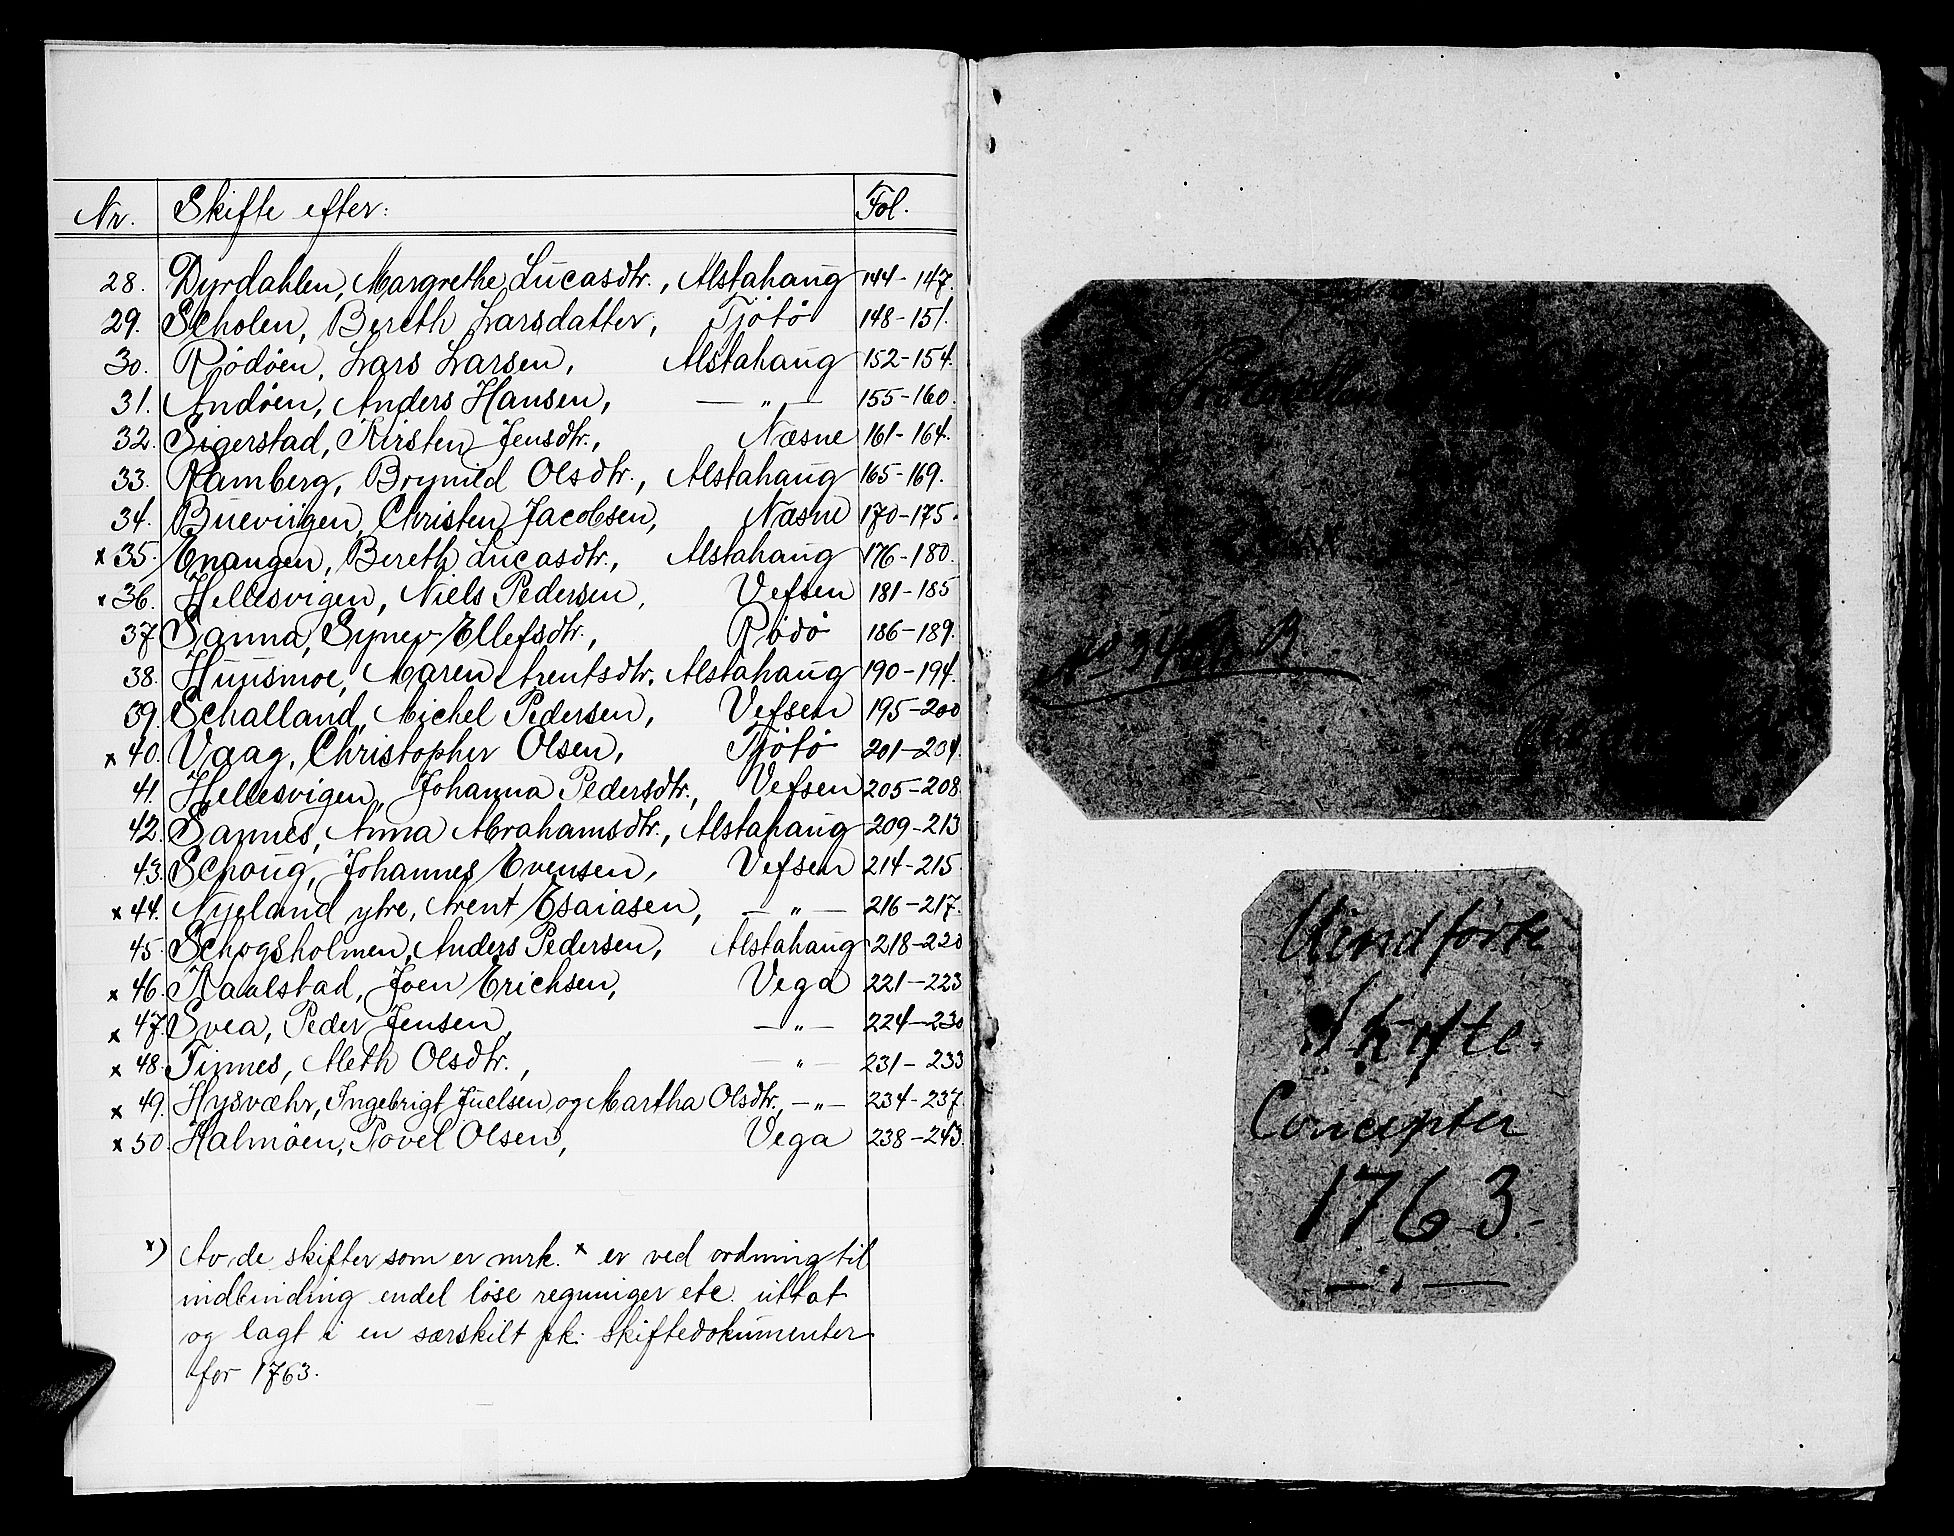 Nr. Skifte efter: Fol.
28. Dyrdahlen, Margrethe Lucasdtr., Alstahaug 144-147.
29. Scholen, Bereth Larsdatter, Tjötö 148-151.
30. Rödöen, Lars Larsen, Alstahaug 152-154.
31. Andöen, Anders Hansen, — „ — 155-160.
32. Sigerstad, Kirsten Jensdtr., Næsne 161-164.
33. Ramberg, Brynild Olsdtr., Alstahaug 165-169.
34. Bueviigen, Christen Jacobsen, Næsne 170-175.
x 35. Enangen, Bereth Lucasdtr., Alstahaug 176-180.
x 36. Hellesvigen, Niels Pedersen, Vefsen 181-185
37. Sanna, Synev Ellefsdtr., Rödö 186-189.
38. Huusmoe, Maren Arentsdtr. Alstahaug 190-194.
39. Schalland, Michel Pedersen, Vefsen 195-200
x 40. Vaag, Christopher Olsen, Tjötö 201-204.
41. Hellesvigen, Johanna Pedersdtr., Vefsen 205-208.
42. Sannes, Anna Abrahamsdtr., Alstahaug 209-213
43. Schoug, Johannes Evensen, Vefsen 214-215.
x 44. Nyeland ytre, Arent Esaiasen, — „ — 216-217.
45. Schogsholmen, Anders Pedersen, Alstahaug 218-220
x 46. Raalstad, Joen Erichsen, Vega 221-223
x 47. Svea, Peder Jensen, — „ — 224-230
x 48. Tinnes, Aleth Olsdtr., — „ — 231-233
x 49. Hysvæhr, Ingebrigt Juelsen og Martha Olsdtr. — „ — 234-237.
x 50. Halmöen, Povel Olsen, Vega 238-243.
x) Av de skifter som er mrk. x er ved ordning til
indbinding endel löse regninger etc. uttat
og lagt i en særskilt pk. skiftedokumenter
for 1763.
B.
Uindförte
Skifte.
Concepter
1763.